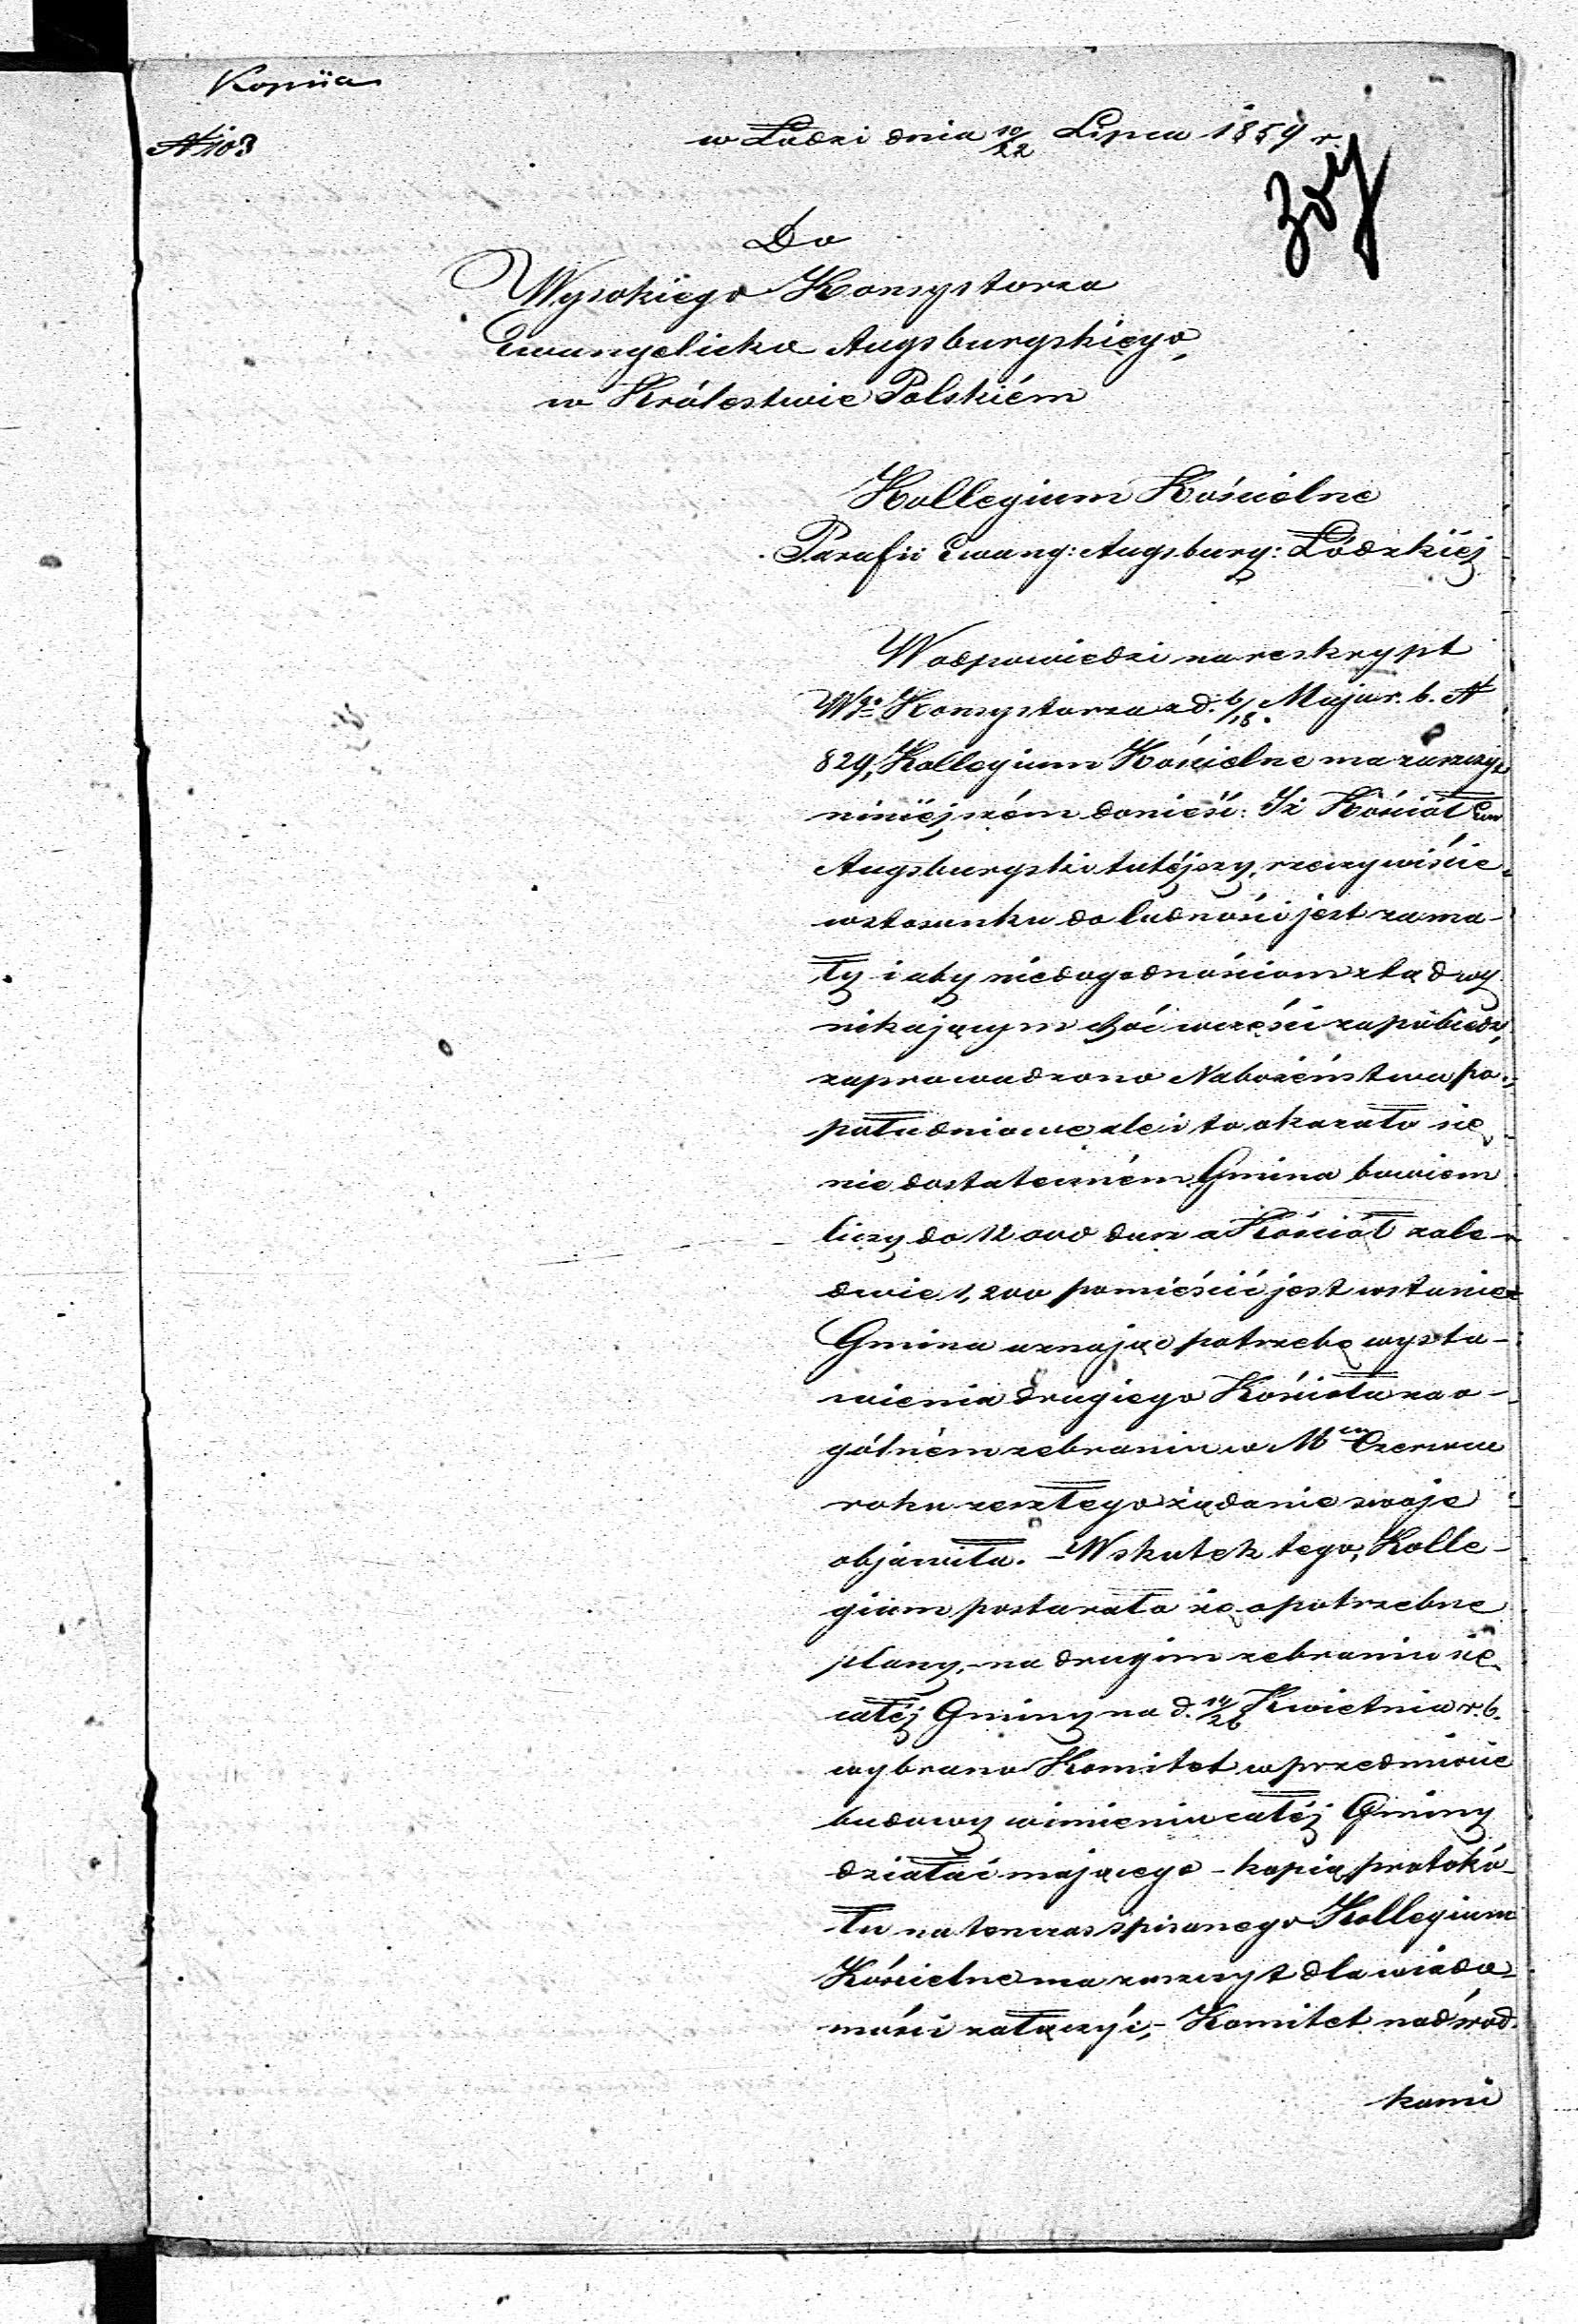 Kopiia
№ 103
w Łodzi dnia 10/22 Lipca 1859 r.
Do
Wysokiego Konsystorza
Ewangelicko Augsburgskiego,
w Królestwie Polskiém
Kollegium Kościelne
Parafii Ewang: Augsburg: Łódzkiéj
W odpowiedzi na reskrypt
Wgo Konsystorza z d. 6/18. Maja r. b. №
829, Kollegium Kościelne ma zaszczyt
niniéjszém donieść: Iż Kościół Ew
Augsburgski tutéjszy, rzeczywiście
w stosunku do ludności jest za ma-
ły i aby niedogodnościom ztąd wy
nikającym choć w części zapobiedz,
zaprowadzono Nabożeństwa po-
południowe ale i to okazało się
nie dostateczném Gmina bowiem
liczy do 12000 dusz a Kościół zale-
dwie 1,200 pomieścić jest w stanie
Gmina uznając potrzebę wysta-
wienia drugiego Kościoła na o-
gólném zebraniu w Mcu Czerwcu
roku zeszłego żądanie swoje
objawiła. - W skutek tego, Kolle-
gium postarało się o potrzebne
plany, - na drugim zebraniu się
całéj Gminy na d. 14/26 Kwietnia r. b.
wybrano Komitet w przedmiocie
budowy w imieniu całéj Gminy
działać mającego - kopią protokó-
łu na tenczas spisanego Kollegium
Kościelne ma zaszczyt dla wiado-
mości załączyć, - Komitet nad środ-
kami